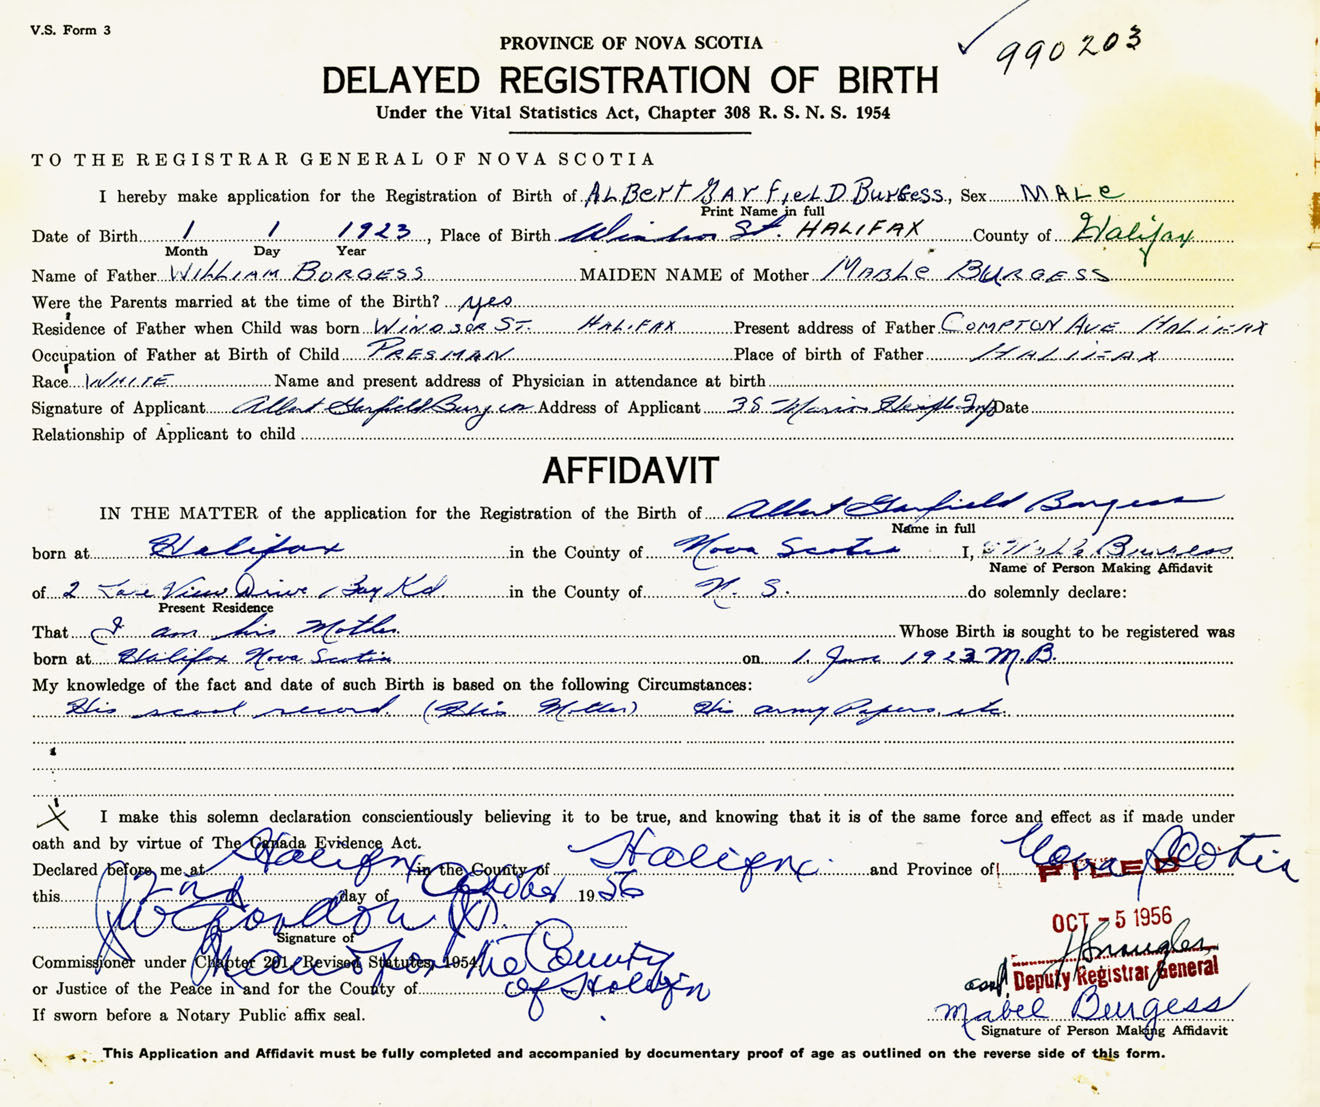 V.S. Form 3
990203
PROVINCE OF NOVA SCOTIA
DELAYED REGISTRATION OF BIRTH
Under the Vital Statistics Act, Chapter 308 R. S. N. S. 1954
TO THE REGISTRAR GENERAL OF NOVA SCOTIA
I hereby make application for the Registration of Birth of ALBerT GArFieLD BurgEss, Sex MALe
Print Name in full
Date of Birth 1 1 1923, Place of Birth Windsor St. HALIFAX County of Halifax
Month Day Year
Name of Father WILLIAM BURGESS MAIDEN NAME of Mother MABLE BURGESS
Were the Parents married at the time of the Birth? yes
Residence of Father when Child was born WINDSOR ST. HALIFAX Present address of Father COMPTON AVE HALIFAX
Occupation of Father at Birth of Child PRESMAN Place of birth of Father HALIFAX
Race WHITE Name and present address of Physician in attendance at birth
Signature of Applicant Albert Garfield Burgess Address of Applicant 38 Date
Relationship of Applicant to child
AFFIDAVIT
IN THE MATTER of the application for the Registration of the Birth of Albert Garfield Burgess
Name in full
born at Halifax in the County of Nova Scotia I, Burgess
Name of Person Making Affidavit
of 2 View Drive, Bay Rd. in the County of N. S. do solemnly declare:
Present Residence
That I am his Mother. Whose Birth is sought to be registered was
born at Halifax Nova Scotia on 1. 1923 M.B.
My knowledge of the fact and date of such Birth is based on the following Circumstances:
His scool record. (His Mother) His army Papers. etc.
X I make this solemn declaration conscientiously believing it to be true, and knowing that it is of the same force and effect as if made under
oath and by virtue of The Canada Evidence Act.
Declared before me at Halifax in the County of Halifax and Province of Nova Scotia
this 2nd day of October 1956
FILED
OCT - 5 1956
Signature of
Commissioner under Chapter 201, Revised Statutes, 1954
for the County
of Halifax
or Justice of the Peace in and for the County of
Deputy Registrar General
If sworn before a Notary Public affix seal.
Mabel Burgess
Signature of Person Making Affidavit
This Application and Affidavit must be fully completed and accompanied by documentary proof of age as outlined on the reverse side of this form.